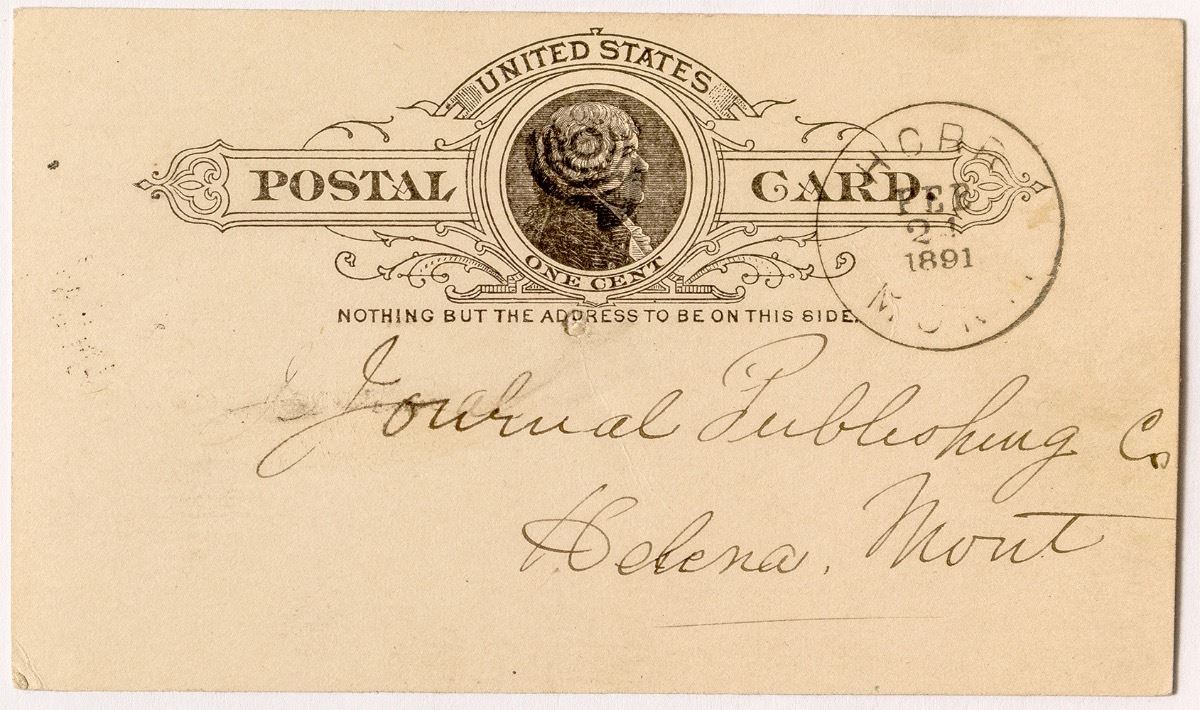 UNITED STATES
POSTAL CARD.
ONE CENT
NOTHING BUT THE ADDRESS TO BE ON THIS SIDE.
FEB
1891
Journal Publishing Co
Helena, Mont